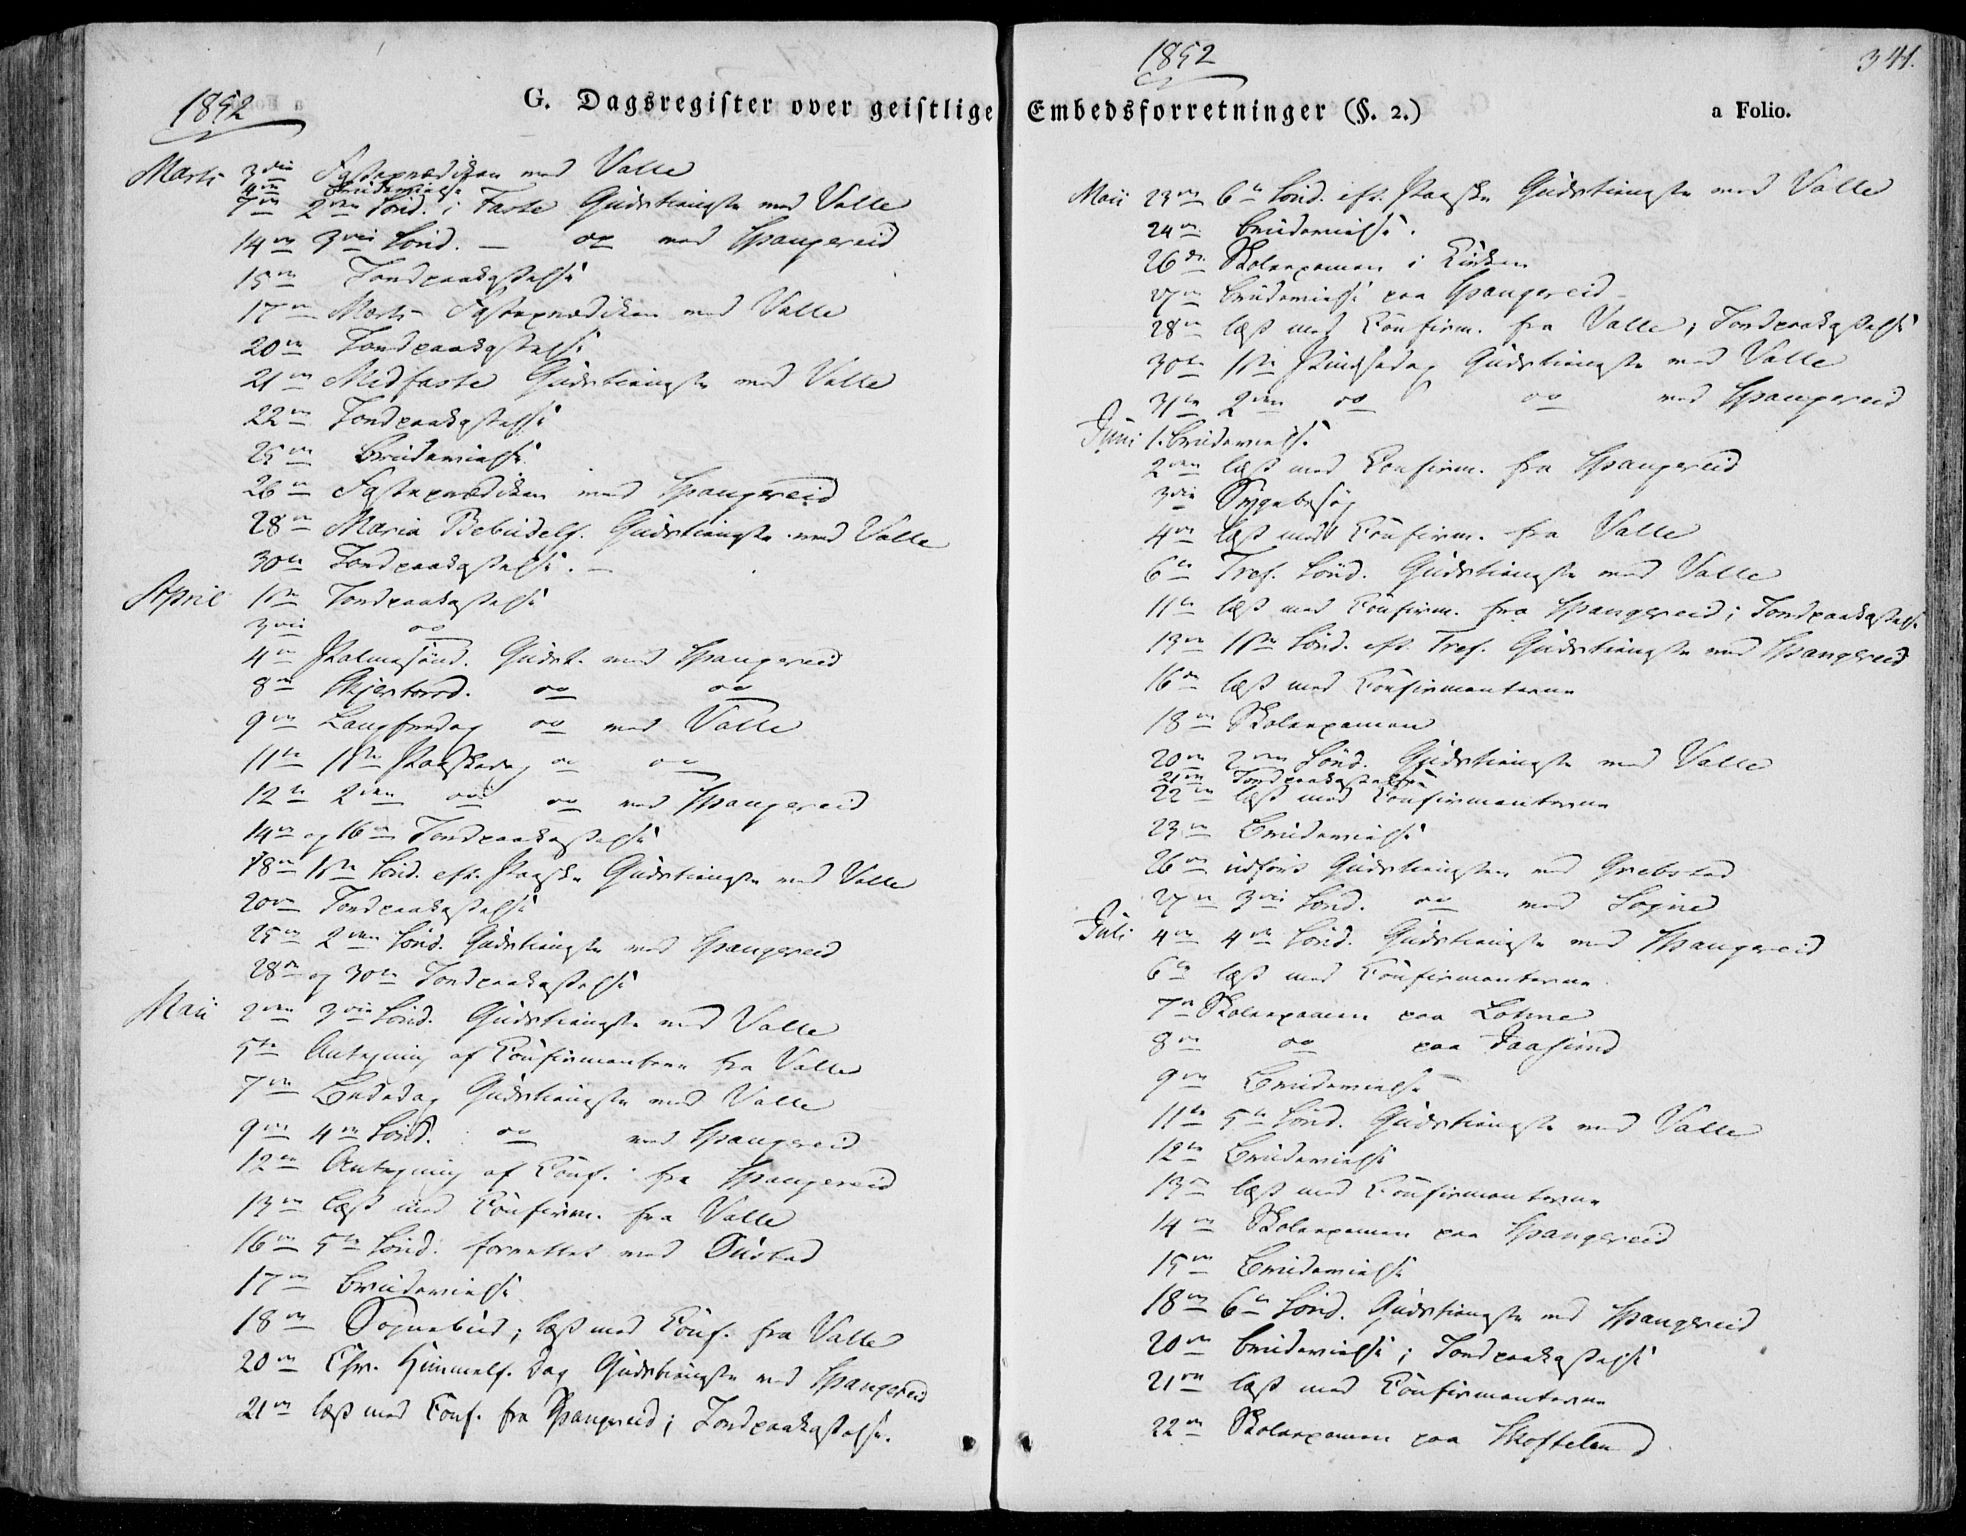 1852
G. Dagsregister over geistlige
Marts 3die Fasteprædiken ved Valle
4de Brudevielse
7de 2den Sönd. i Faste Gudstieneste ved Valle
14de 3die Sönd. — do ved Spangereid
15de Jordpaakastelse
17de Marts Fasteprædiken ved Valle
20de Jordpaakastelse
21de Midfaste Gudstieneste ved Valle
22de Jordpaakastelse
25de Brudevielse
26de Fasteprædiken ved Spangereid
28de Maria Bebudels. Gudstieneste ved Valle
30te Jordpaakastelse. —
April 1ste Jordpaakastelse
3die do
4de Palmesönd. Gudst. ved Spangereid
8de Skjertorsd. do do
9de Langfredag do ved Valle
11te 1ste Paaskedag do do
12te 2den do do ved Spangereid
14de og 16de Jordpaakastelse
18de 1ste Sönd. eft. Paaske Gudstieneste ved Valle
20de Jordpaakastelse
25de 2den Sönd. Gudstieneste ved Spangereid
28de og 30te Jordpaakastelse
Maii 2den 3die Sönd. Gudstieneste ved Valle
5te Antegning af Confirmanterne fra Valle
7de Bededag Gudstieneste ved Valle
9de 4de Sönd. do ved Spangereid
12te Antegning af Conf. fra Spangereid
13de læst med Confirm. fra Valle
16de 5te Sönd. forrettet ved
17de Brudevielse
18de Sognebud; læst med Conf. fra Valle
20de Chr. Himmelf. Dag Gudstieneste ved Spangereid
21de læst med Conf. fra Spangereid; Jordpaakastelse.
1852
341.
Embedsforretninger (§. 2.)
a Folio.
Maii 23de 6te Sönd. eft. Paaske Gudstieneste ved Valle
24de Brudevielse.
26de Skoleexamen i Kirken
27de Brudevielse paa Spangereid
28de læst med Confirm. fra Valle; Jordpaakastelse
30te 1ste Pindsedag Gudstieneste ved Valle
31te 2den do do ved Spangereid
Juni 1. Brudevielse
2den læst med Confirm. fra Spangereid
3die Sygebesög
4de læst med Confirm. fra Valle
6te Tref. Sönd. Gudstieneste ved Valle
11te læst med Confirm. fra Spangereid; Jordpaakastelse
13de 1ste Sönd. eft. Tref. Gudstieneste ved Spangereid
16de læst med Confirmanterne
18de Skoleexamen
20de 2den Sönd. Gudstieneste ved Valle
21de Jordpaakastelse
22de læst med Confirmanterne
23de Brudevielse
26de udförs Gudstienesten ved Grebstad
27de 3die Sönd. do ved Sogne
Juli 4de 4de Sönd. Gudstieneste ved Spangereid
6te læst med Confirmanterne
7de Skoleexamen paa
8de do paa
9de Brudevielse
11te 5te Sönd. Gudstieneste ved Valle
12te Brudevielse
13de læst med Confirmanterne
14de Skoleexamen paa Spangereid
15de Brudevielse
18de 6te Sönd. Gudstieneste ved Spangereid
20de Brudevielse; Jordpaakastelse
21de læst med Confirmanterne
22de Skoleexamen paa